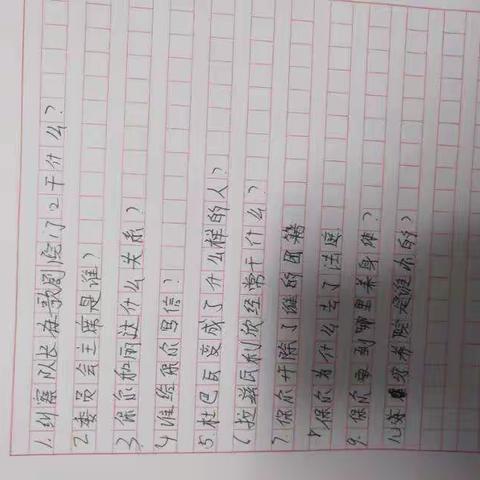 1.纠察队长在歌剧院门口干什么?
2.委员会主席是谁?
3.保尔和丽达什么关系?
4.谁给保尔写信?
5.杜巴瓦变成了什么样的人?
6.拉兹瓦利欣经常干什么?
7.保尔开除了谁的团籍
8.保尔为什么去了法庭
9.保尔要到哪里养身体?
10.疗养院是谁办的?